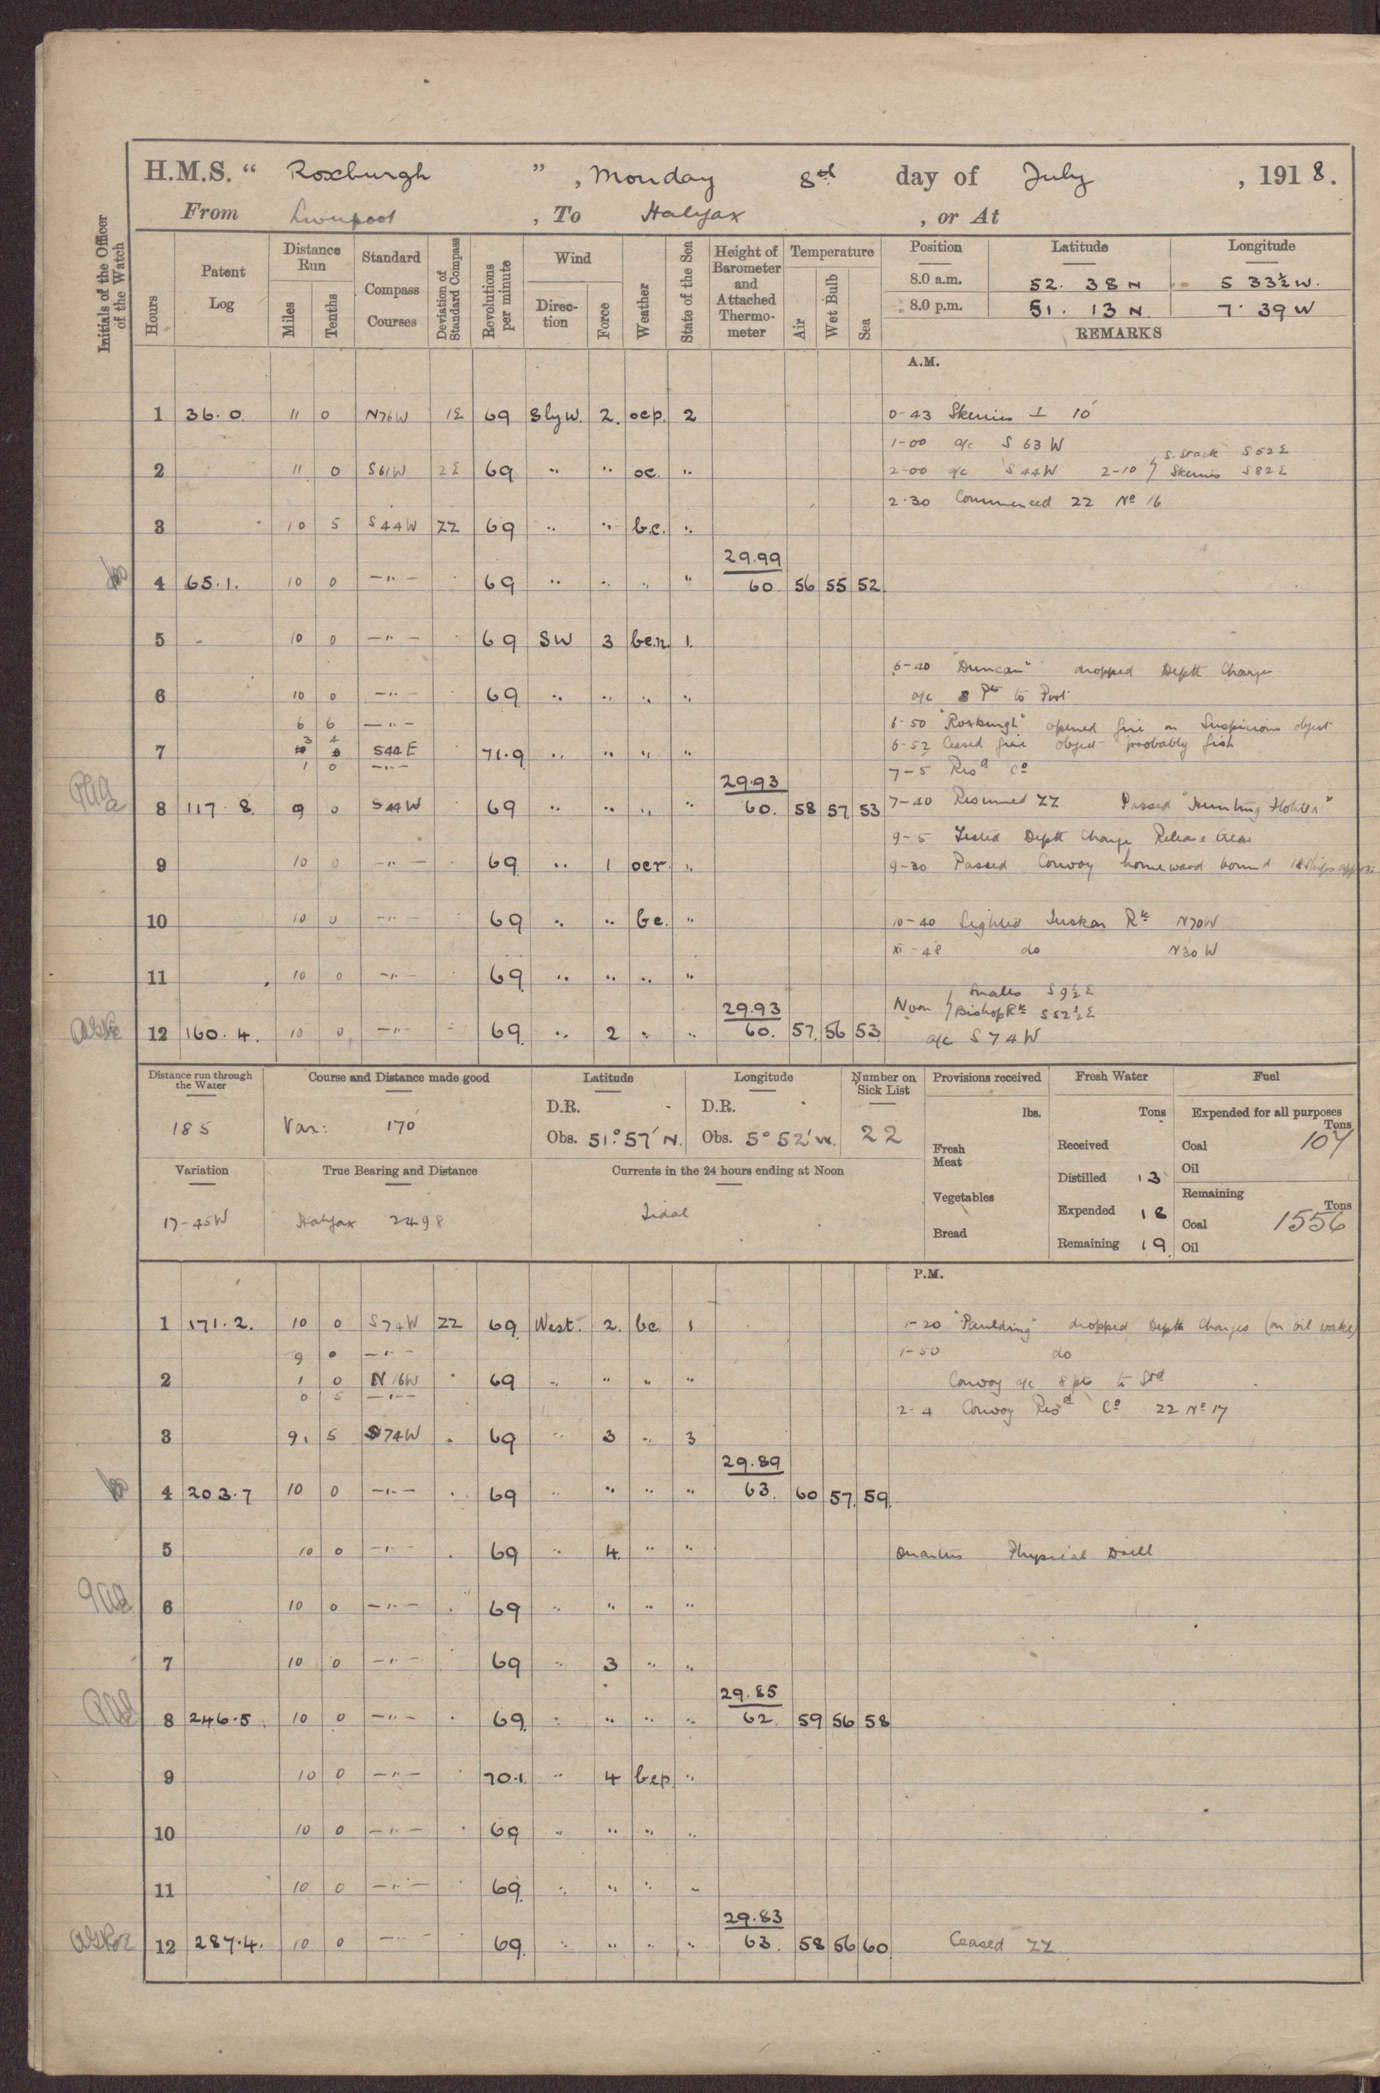 H.M.S. “ Roxburgh ” , Monday 8th day of July , 1918.
From Liverpool , To Halifax , or At
Initials of the Officer of the Watch
Hours
Patent Log
Distance Run
Miles
Tenths
Standard Compass Courses
Deviation of Standard Compass
Revolutions per minute
Wind
Direction
Force
Weather
State of the Sea
Height of Barometer and Attached Thermometer
Temperature
Air
Wet Bulb
Sea
Position Latitude Longitude
8.0 a.m. 52. 38 N 5 33½ W.
8.0 p.m. 51. 13 N 7. 39 W
REMARKS
A.M.
1 36.0 11 0 N76W 1E 69 Sly W. 2. ocp. 2 0-43 Skerries ⊥ 10'
1-00 a/c S 63 W
S. Stack S52E
2 11 0 S61W 2E 69 " " oc. " 2-00 a/c S44W 2-10 Skerries S82E
2.30 Commenced ZZ No 16
3 10 5 S44W ZZ 69 " " b.c. "
29.99
4 65.1. 10 0 — " — 69 " " " " 60 56 55 52
5 - 10 0 — " — 69 SW 3 1.
6-40 "Duncan" dropped Depth Charge
6 10 0 — " — 69 " " " " a/c 8 Pts to Port
6 6 — " — 6-50 "Roxburgh" opened fire on Suspicious object
3 4
7 S44E 71.9 " " " " 6-52 Ceased fire object probably fish
1 0 — " — 7-5 Resd Co
29.93
8 117.8. 9 0 S44W 69 " " " " 60. 58 57 53 7-40 Resumed ZZ Passed
9-5 Tested Depth Charge Release Gear
9 10 0 — " — 69 " 1 ocr. " 9-30 Passed Convoy homeward bound
10 10 0 — " — 69 " " bc. " 10-40 Sighted Tuskar Rk N70W
do N30W
11 10 0 — " — 69 " " " "
29.93 Noon Smalls S9½E
Bishop Rk S52½E
12 160.4. 10 0 — " — 69 " 2 " " 60. 57. 56 53 a/c S74W
Distance run through the Water
185
Course and Distance made good
Var: 170
Latitude
D.R.
Obs. 51° 57' N.
Longitude
D.R.
Obs. 5° 52' W.
Number on Sick List
22
Provisions received
lbs.
Fresh Meat
Vegetables
Bread
Fresh Water
Tons
Received
Distilled 13
Expended 18
Remaining 19
Fuel
Expended for all purposes
Tons
Coal 107
Oil
Remaining
Tons
Coal 1556
Oil
Variation
17-45W
True Bearing and Distance
Halifax 2498
Currents in the 24 hours ending at Noon
Tidal
P.M.
1 171.2. 10 0 S74W ZZ 69 West. 2. bc 1 1-20 "Paulding" dropped Depth Charges (on oil wake)
9 0 — " — 1-50 do
2 1 0 N16W 69 " " " " Convoy a/c 8 pts to Stbd
0 5 — " — 2-4 Convoy Resd Co ZZ No 17
3 9. 5 S74W 69 " 3 " 3
29.89
4 203.7 10 0 — " — 69 " " " " 63. 60 57. 59
5 10 0 — " — 69 " 4 " " Quarters Physical Drill
6 10 0 — " — 69 " " " "
7 10 0 — " — 69 " 3 " "
29.85
8 246.5 10 0 — " — 69. " " " " 62. 59 56 58
9 10 0 — " — 70.1. " 4 bcp "
10 10 0 — " — 69 " " " "
11 10 0 — " — 69. " " " "
29.83
12 287.4. 10 0 — " — 69. " " " " 63. 58 56 60 Ceased ZZ